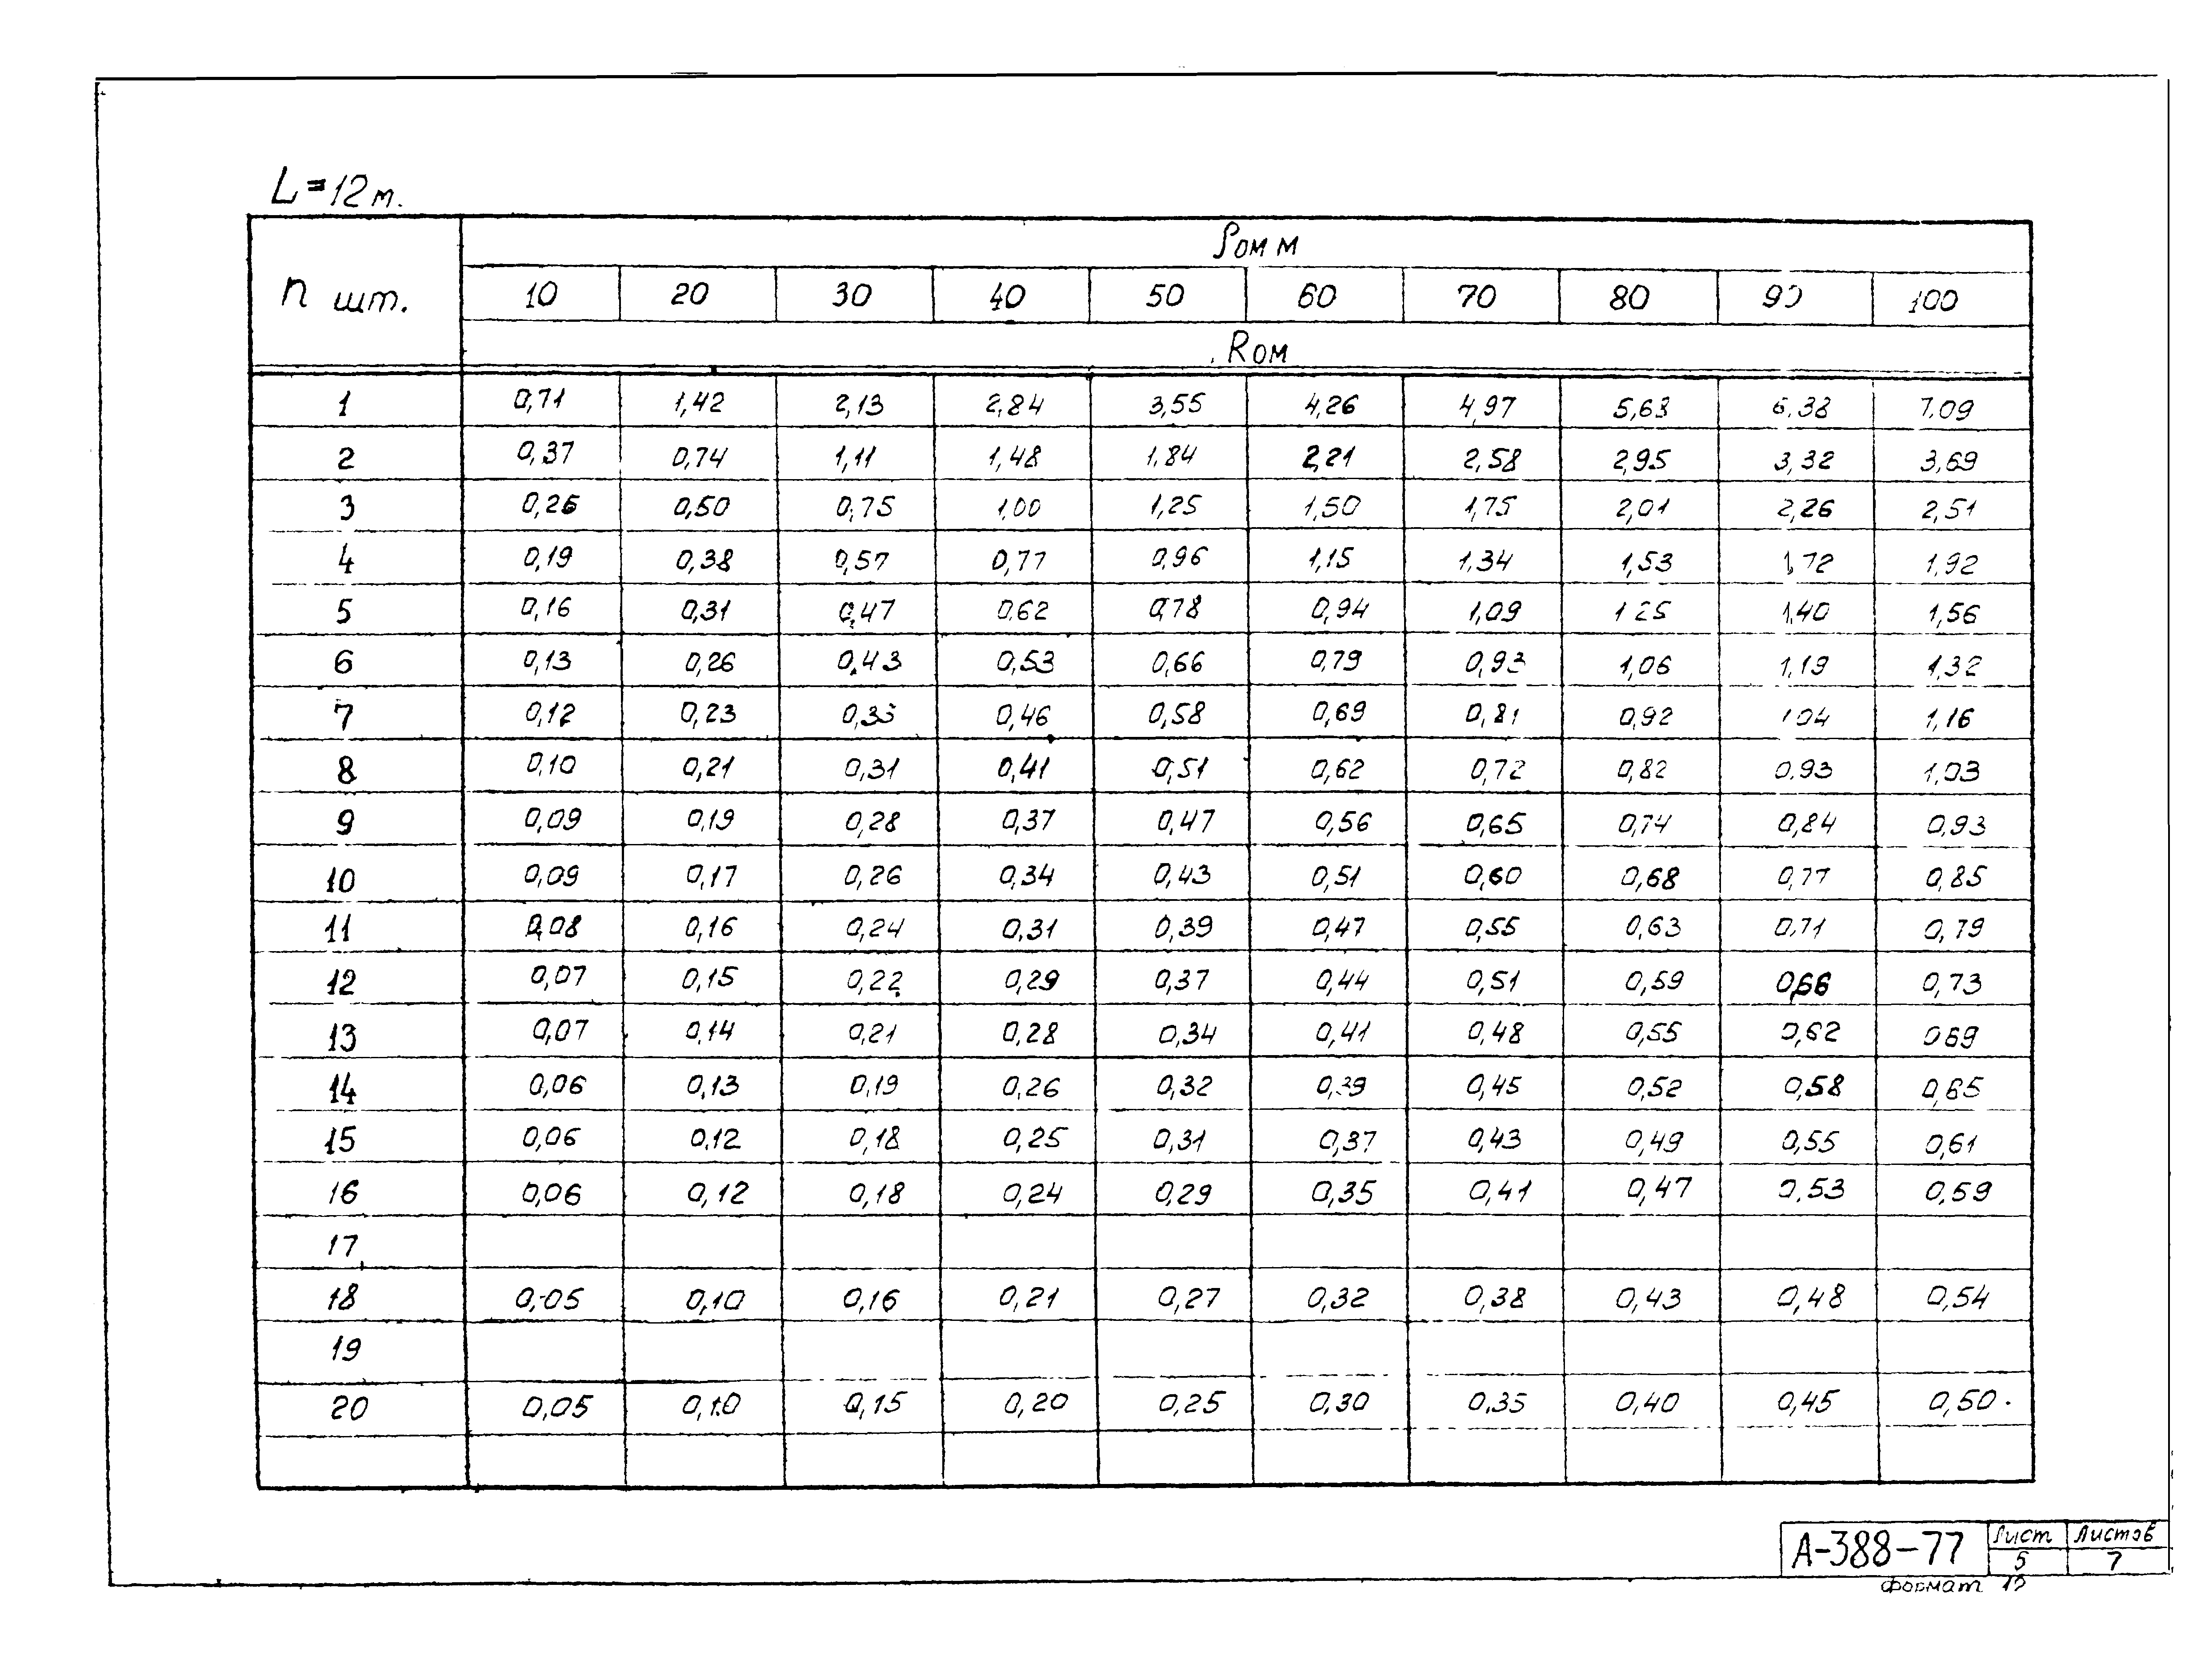 L=12м.
n шт.
ρ ом м
10 20 30 40 50 60 70 80 90 100
R ом
1 0,71 1,42 2,13 2,84 3,55 4,26 4,97 5,68 6,38 7,09
2 0,37 0,74 1,11 1,48 1,84 2,21 2,58 2,95 3,32 3,69
3 0,26 0,50 0,75 1,00 1,25 1,50 1,75 2,01 2,26 2,51
4 0,19 0,38 0,57 0,77 0,96 1,15 1,34 1,53 1,72 1,92
5 0,16 0,31 0,47 0,62 0,78 0,94 1,09 1,25 1,40 1,56
6 0,13 0,26 0,43 0,53 0,66 0,79 0,93 1,06 1,19 1,32
7 0,12 0,23 0,35 0,46 0,58 0,69 0,81 0,92 1,04 1,16
8 0,10 0,21 0,31 0,41 0,51 0,62 0,72 0,82 0,93 1,03
9 0,09 0,19 0,28 0,37 0,47 0,56 0,65 0,74 0,84 0,93
10 0,09 0,17 0,26 0,34 0,43 0,51 0,60 0,68 0,77 0,85
11 0,08 0,16 0,24 0,31 0,39 0,47 0,55 0,63 0,71 0,79
12 0,07 0,15 0,22 0,29 0,37 0,44 0,51 0,59 0,66 0,73
13 0,07 0,14 0,21 0,28 0,34 0,41 0,48 0,55 0,62 0,69
14 0,06 0,13 0,19 0,26 0,32 0,39 0,45 0,52 0,58 0,65
15 0,06 0,12 0,18 0,25 0,31 0,37 0,43 0,49 0,55 0,61
16 0,06 0,12 0,18 0,24 0,29 0,35 0,41 0,47 0,53 0,59
17
18 0,05 0,10 0,16 0,21 0,27 0,32 0,38 0,43 0,48 0,54
19
20 0,05 0,10 0,15 0,20 0,25 0,30 0,35 0,40 0,45 0,50.
А-388-77
Лист Листов
5 7
формат 12